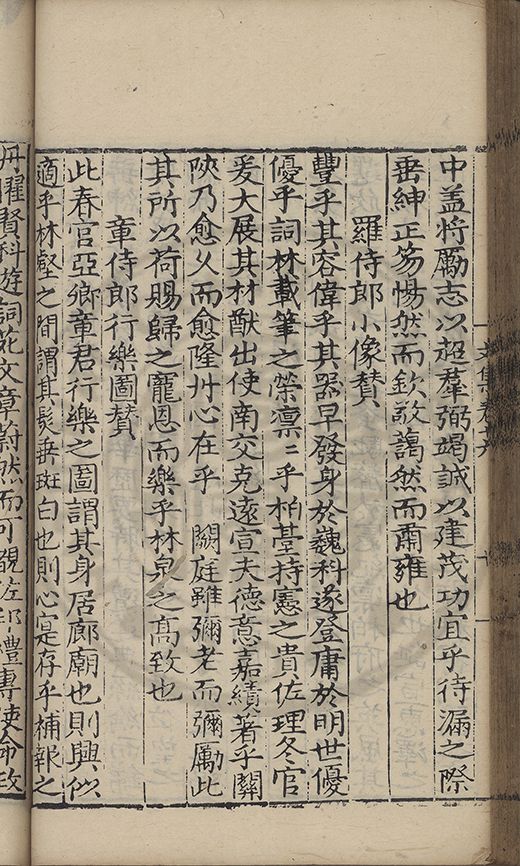 中盖將勵志以超羣弼竭誠以建茂功宜乎待漏之際
垂紳正笏惕然而欽敬藹然而肅雍也
羅侍郎小像贊
豐乎其容偉乎其器早發身於巍科遂登庸於明世優
優乎詞林載筆之榮凛〻乎柏䑓持憲之貴佐理冬官
爰大展其材猷出使南交克遠宣夫德意嘉績著乎關
陝乃愈乆而愈隆丹心在乎 闕庭雖彌老而彌勵此
其所以荷賜歸之寵恩而樂乎林泉之髙致也
章侍郎行樂圖贊
此春官亞卿章君行樂之圖謂其身居廊廟也則興似
適乎林壑之間謂其髮垂斑白也則心寔存乎補報之
丹擢賢科遊詞苑文章蔚然而可觀佐邦禮專使命政
文集卷六